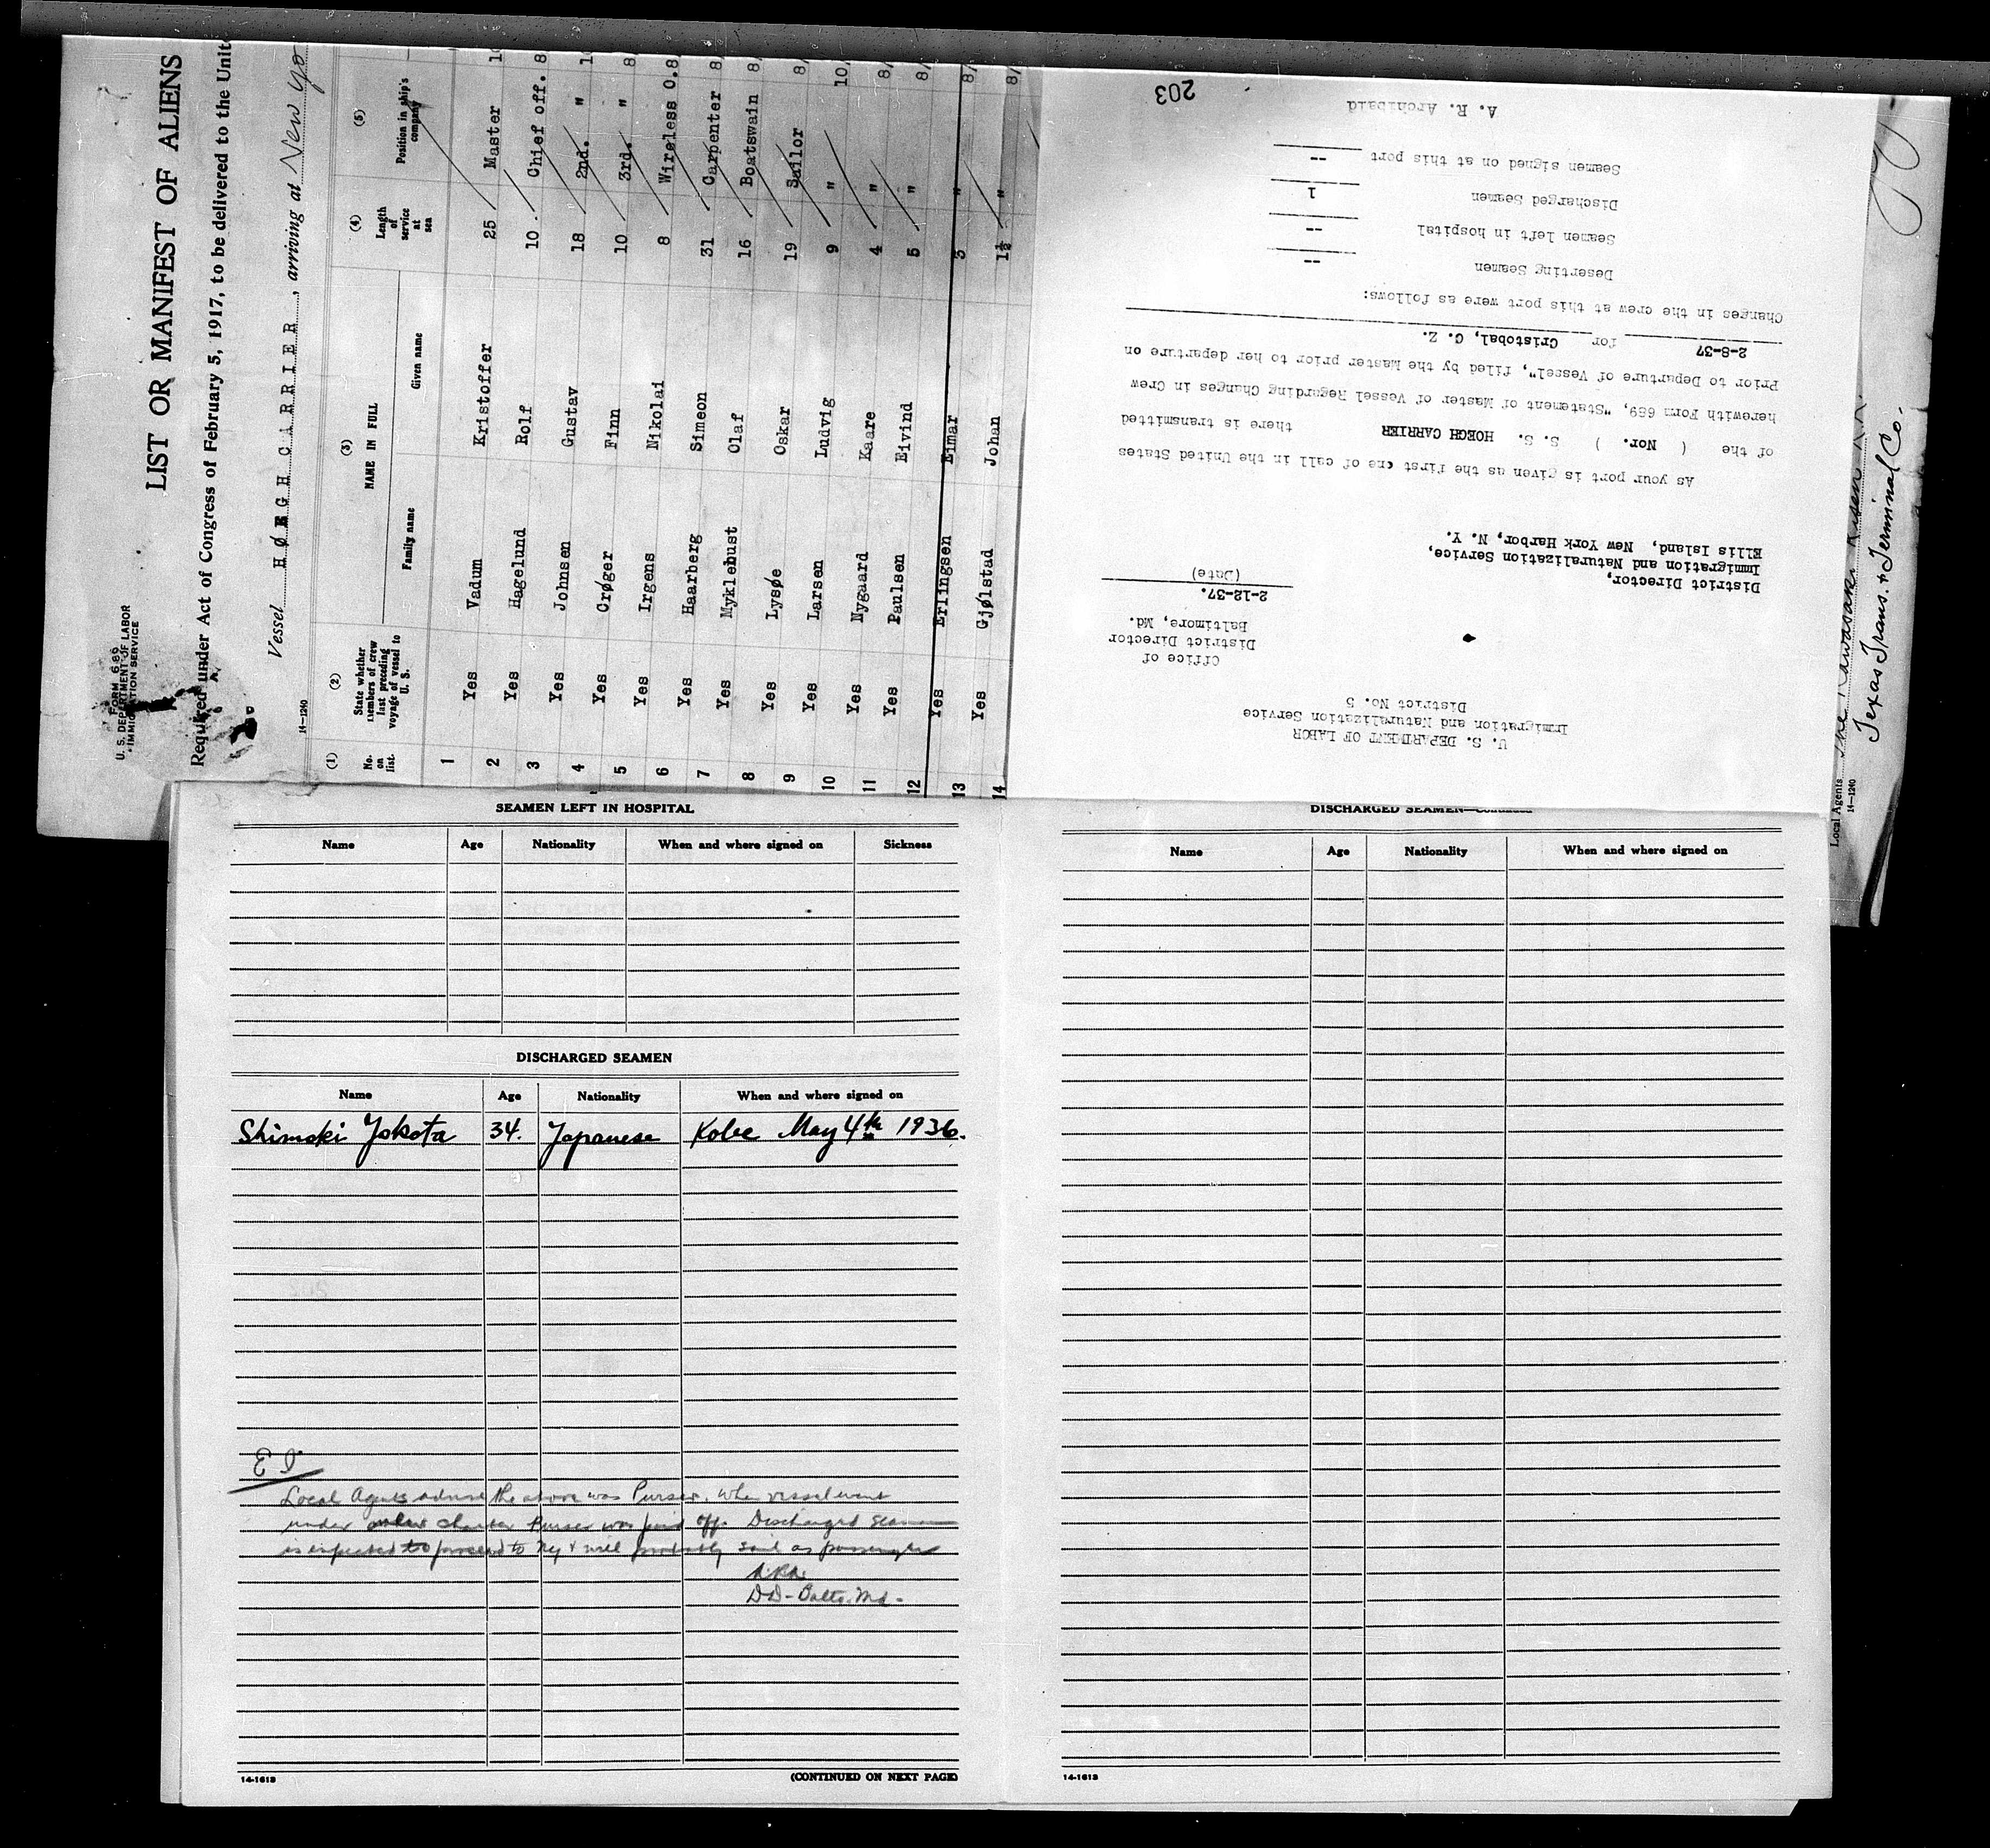 FORM 689
U. S. DEPARTMENT OF LABOR
IMMIGRATION SERVICE
LIST OR MANIFEST OF ALIENS
Required under Act of Congress of February 5, 1917, to be delivered to the Unit
Vessel HØEGH CARRIER, arriving at New Yo
14-1240
(1) (2) (3) (4) (5)
No. on list. State whether members of crew last preceding voyage of vessel to U. S. NAME IN FULL Length of service at sea Position in ship's company
Family name Given name
1
2 Yes Vadum Kristoffer 25 Master 10
3 Yes Hagelund Rolf 10 Chief off. 8
4 Yes Johnsen Gustav 18 2nd. " 10
5 Yes Crøger Finn 10 3rd. " 8
6 Yes Irgens Nikolai 8 Wireless O. 8
7 Yes Haarberg Simeon 31 Carpenter 8/
8 Yes Myklebust Olaf 16 Boatswain 8/
9 Yes Lysøe Oskar 19 Sailor 8/
10 Yes Larsen Ludvig 9 " 10/
11 Yes Nygaard Kaare 4 " 8/
12 Yes Paulsen Eivind 5 " 8/
13 Yes Erlingsen Eimar 3 " 8/
14 Yes Gjølstad Johan 1½ " 8/
U. S. DEPARTMENT OF LABOR
Immigration and Naturalization Service
District No. 5
Office of
District Director
Baltimore, Md.
2-12-37.
(Date)
District Director,
Immigration and Naturalization Service,
Ellis Island, New York Harbor, N. Y.
As your port is given as the first one of call in the United States
of the ( Nor. ) S. S. HOEGH CARRIER there is transmitted
herewith Form 689, "Statement of Master of Vessel Regarding Changes in Crew
Prior to Departure of Vessel", filed by the Master prior to her departure on
2-8-37 for Cristobal, C. Z.
Changes in the crew at this port were as follows:
Deserting Seamen --
Seamen left in hospital --
Discharged Seamen 1
Seamen signed on at this port --
A. R. Archibald
203
Local Agents The Kawasaki Kisen K.K.
Texas Trans. & Terminal Co.
14-1240
SEAMEN LEFT IN HOSPITAL
Name Age Nationality When and where signed on Sickness
DISCHARGED SEAMEN
Name Age Nationality When and where signed on
Shimaki Yokota 34. Japanese Kobe May 4th 1936.
E I
Local Agents advise the above was Purser. When vessel went
under charter Purser was paid off. Discharged seaman
is expected to proceed to NY & will probably sail as passenger
A.R.A.
DD-Balto. Md.
14-1613
(CONTINUED ON NEXT PAGE)
DISCHARGED SEAMEN—Continued
Name Age Nationality When and where signed on
14-1613